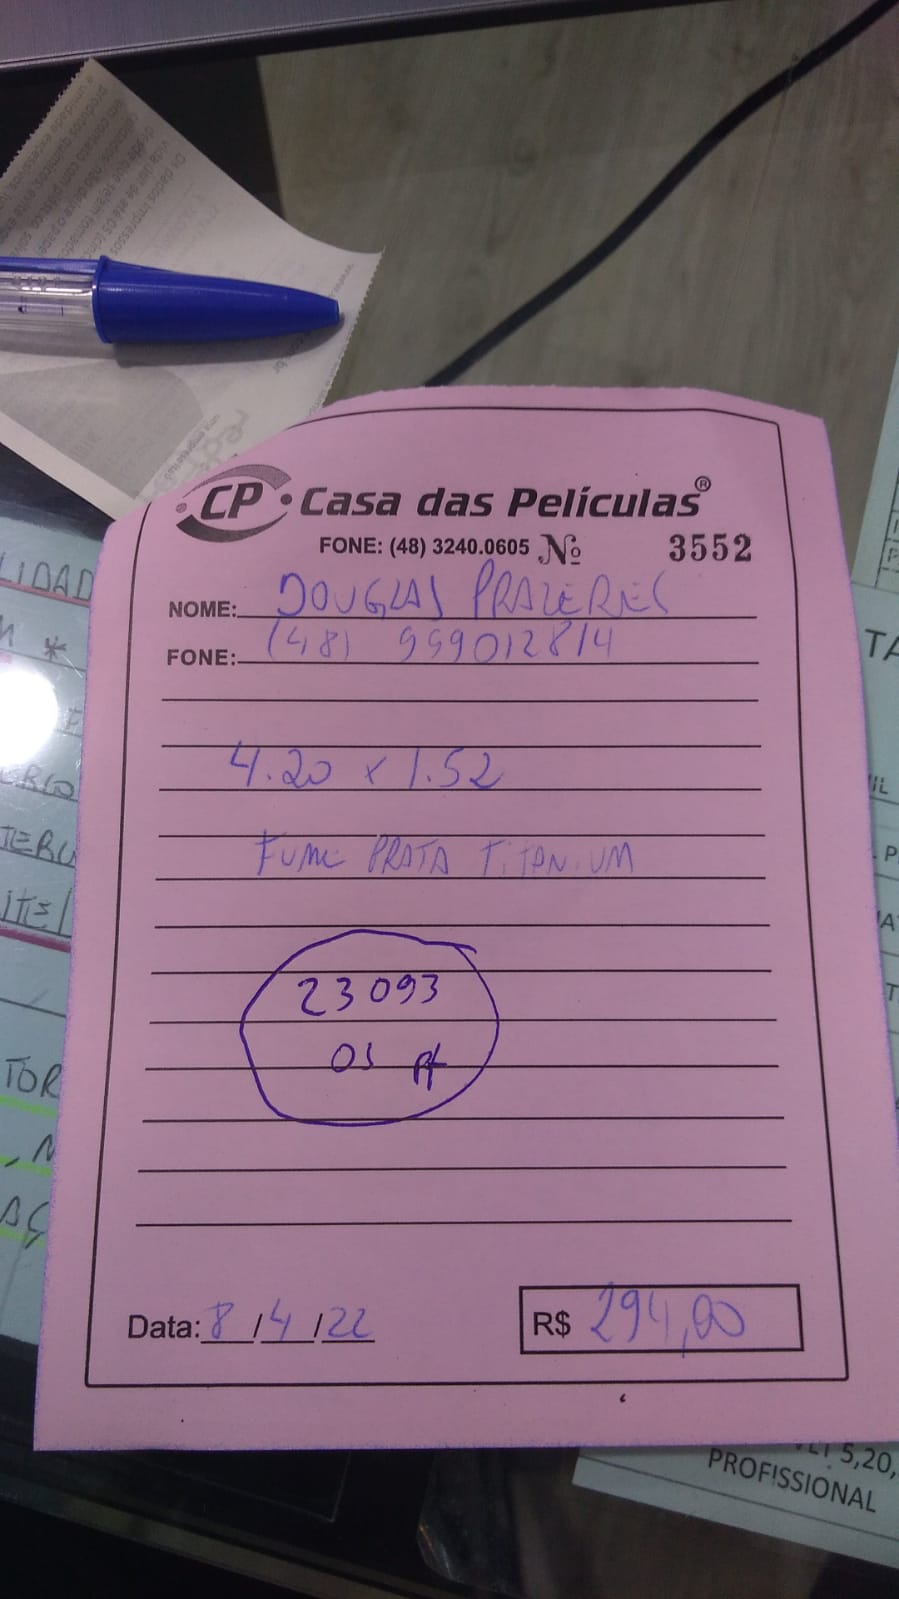 CP Casa das Películas®
FONE: (48) 3240.0605 Nº 3552
NOME: DOUGLAS PRAZERES
FONE: (48) 999012814
4.20 x 1.52
FUME PRATA TITANIUM
23093
Data: 8/4/22
R$ 294,00
LIDAD
TOR
5,20,
PROFISSIONAL